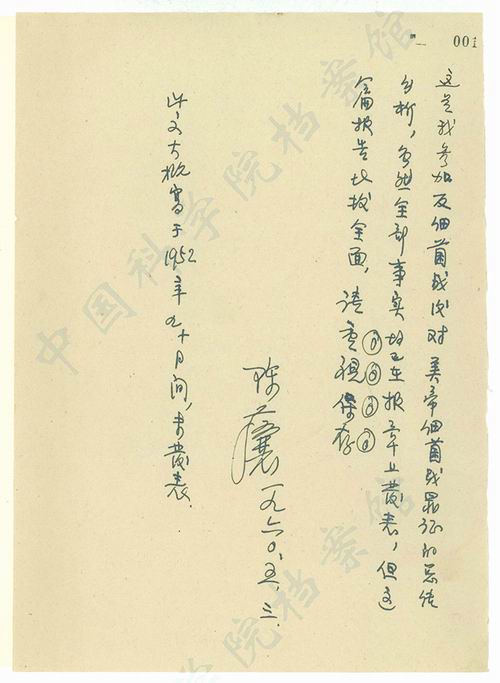 001
这是我参加反细菌战后对美帝细菌战罪证的总结
分析，虽然全部事实均已在报章上发表，但这
篇报告比较全面，请重视保存
陈
一九六〇.五.三.
此文大概写于1952年九十月间，未发表.
中国科学院档案馆